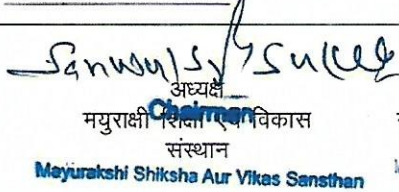 अध्यक्ष
Chairman
मयुराक्षी शिक्षा एवं विकास
संस्थान
Mayurakshi Shiksha Aur Vikas Sansthan